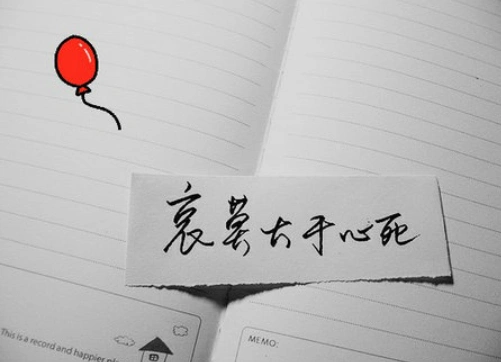 哀莫大于心死
This is a record and happier pl
MEMO: